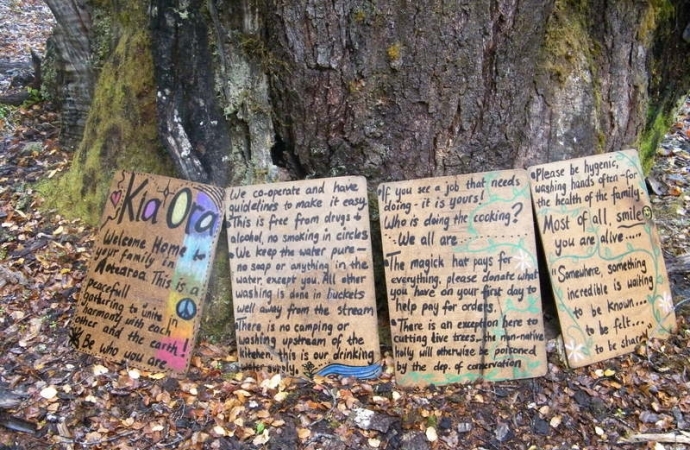 Kia Ora
Welcome Home to
your family in
Aotearoa. This is a
peaceful
gathering to unite in
harmony with each
other and the earth!
Be who you are
We co-operate and have
guidelines to make it easy
This is free from drugs +
alcohol, no smoking in circles
We keep the water pure -
no soap or anything in the
water, except you. All other
washing is done in buckets
well away from the stream
There is no camping or
washing upstream of the
kitchen, this is our drinking
water supply.
If you see a job that needs
doing - it is yours!
Who is doing the cooking?
We all are
The magick hat pays for
everything, please donate what
you have on your first day to
help pay for orders.
There is an exception here to
cutting live trees... the non-native
holly will otherwise be poisoned
by the dep. of conservation
Please be hygenic,
washing hands often - for
the health of the family -
Most of all, smile
you are alive....
"Somewhere, something
incredible is waiting
to be known...
to be felt...
to be shared"